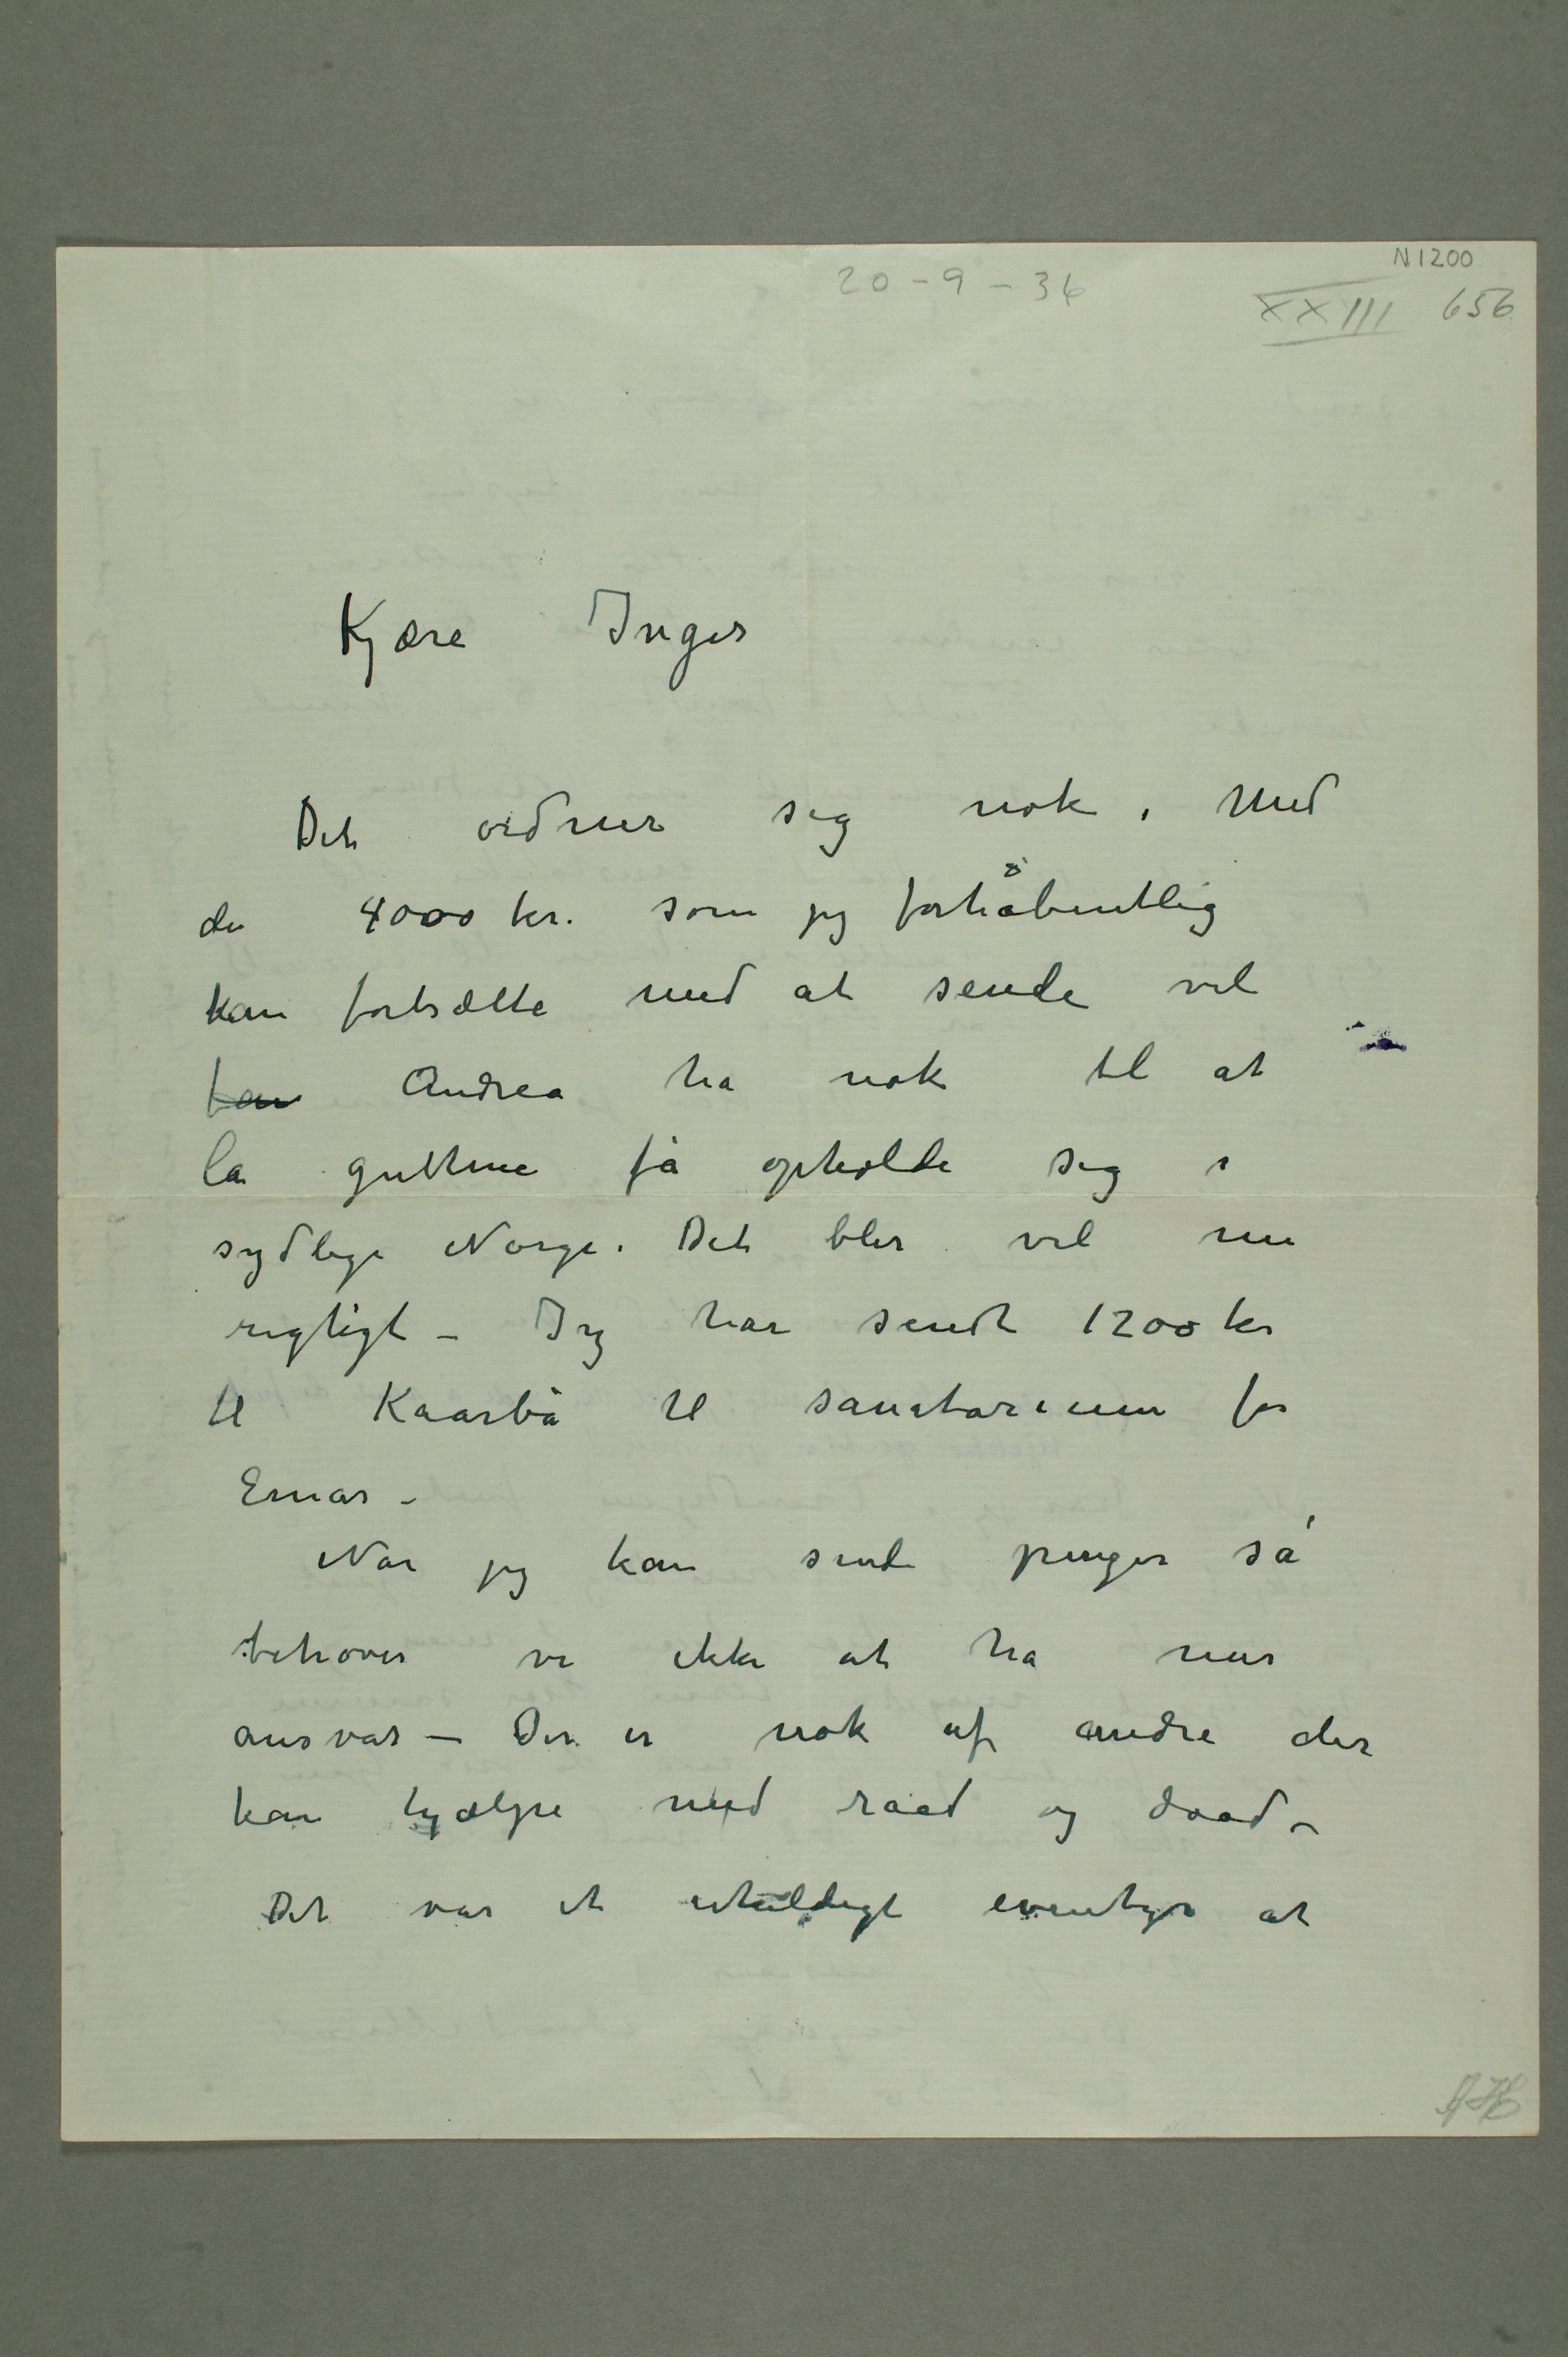 N1200
20-9-36
XXIII 656
Kjære Inger
Det ordner sig nok, Med
de 4000 kr. som jeg forhåbentlig
kan fortsætte med at sende vil
kan Andrea ha nok til at
la guttene få opholde sig i
sydlige Norge. Det blir vel nu
rigtigt – Jeg har sendt 1200 kr
til Kaarbå til sanatorium for
Einar –
Når jeg kan sende penger så
behøver vi ikke at ha mer
ansvar – Der er nok af andre der
kan hjælpe med raad og daad –
Det var et uheldigt eventyr at